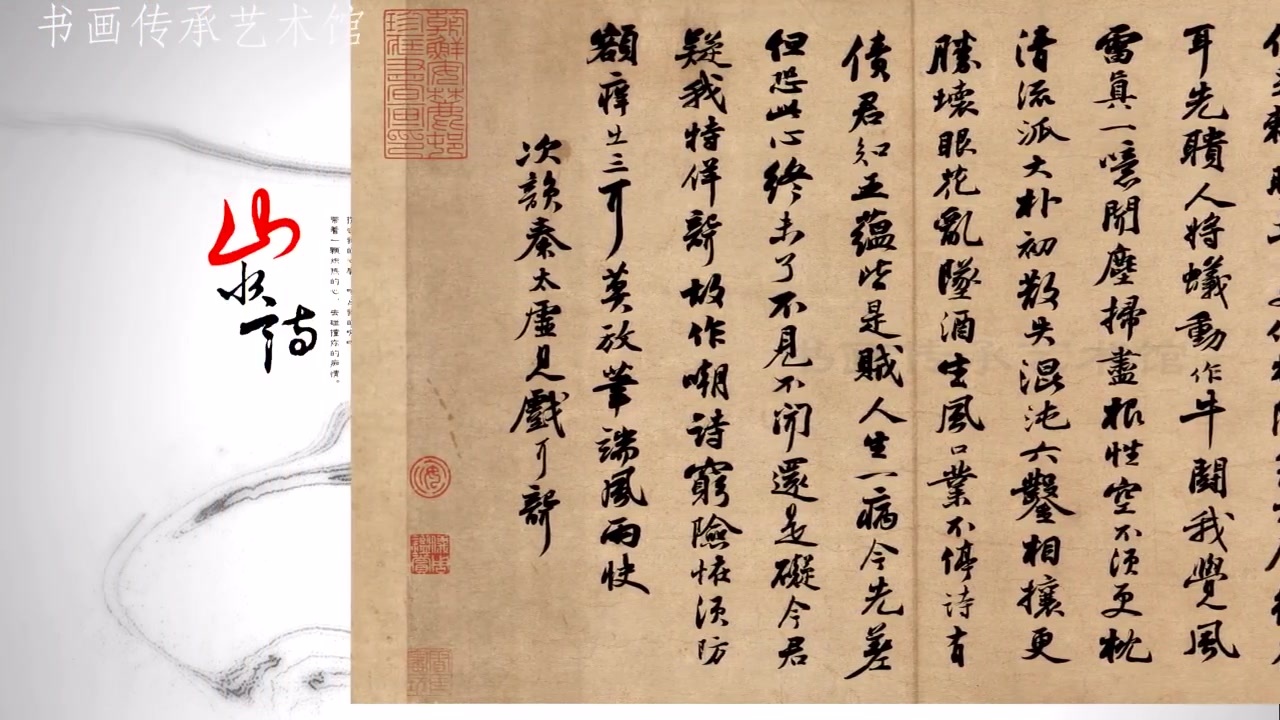 书画传承艺术馆
山水诗
耳先聵人将蟻動作牛鬪我覺風
雷真一噫聞塵掃盡根性空不須更枕
清流派大朴初散失混沌六鑿相攘更
勝壞眼花亂墜酒生風口業不停詩有
債君知五蘊皆是賊人生一病今先差
但恐此心終未了不見不聞還是礙今君
疑我特佯聾故作嘲詩窮險怪須防
額痒出三耳莫放筆端風雨快
次韻秦太虛見戲耳聾
朝鮮安麓邨
珍藏書畫印